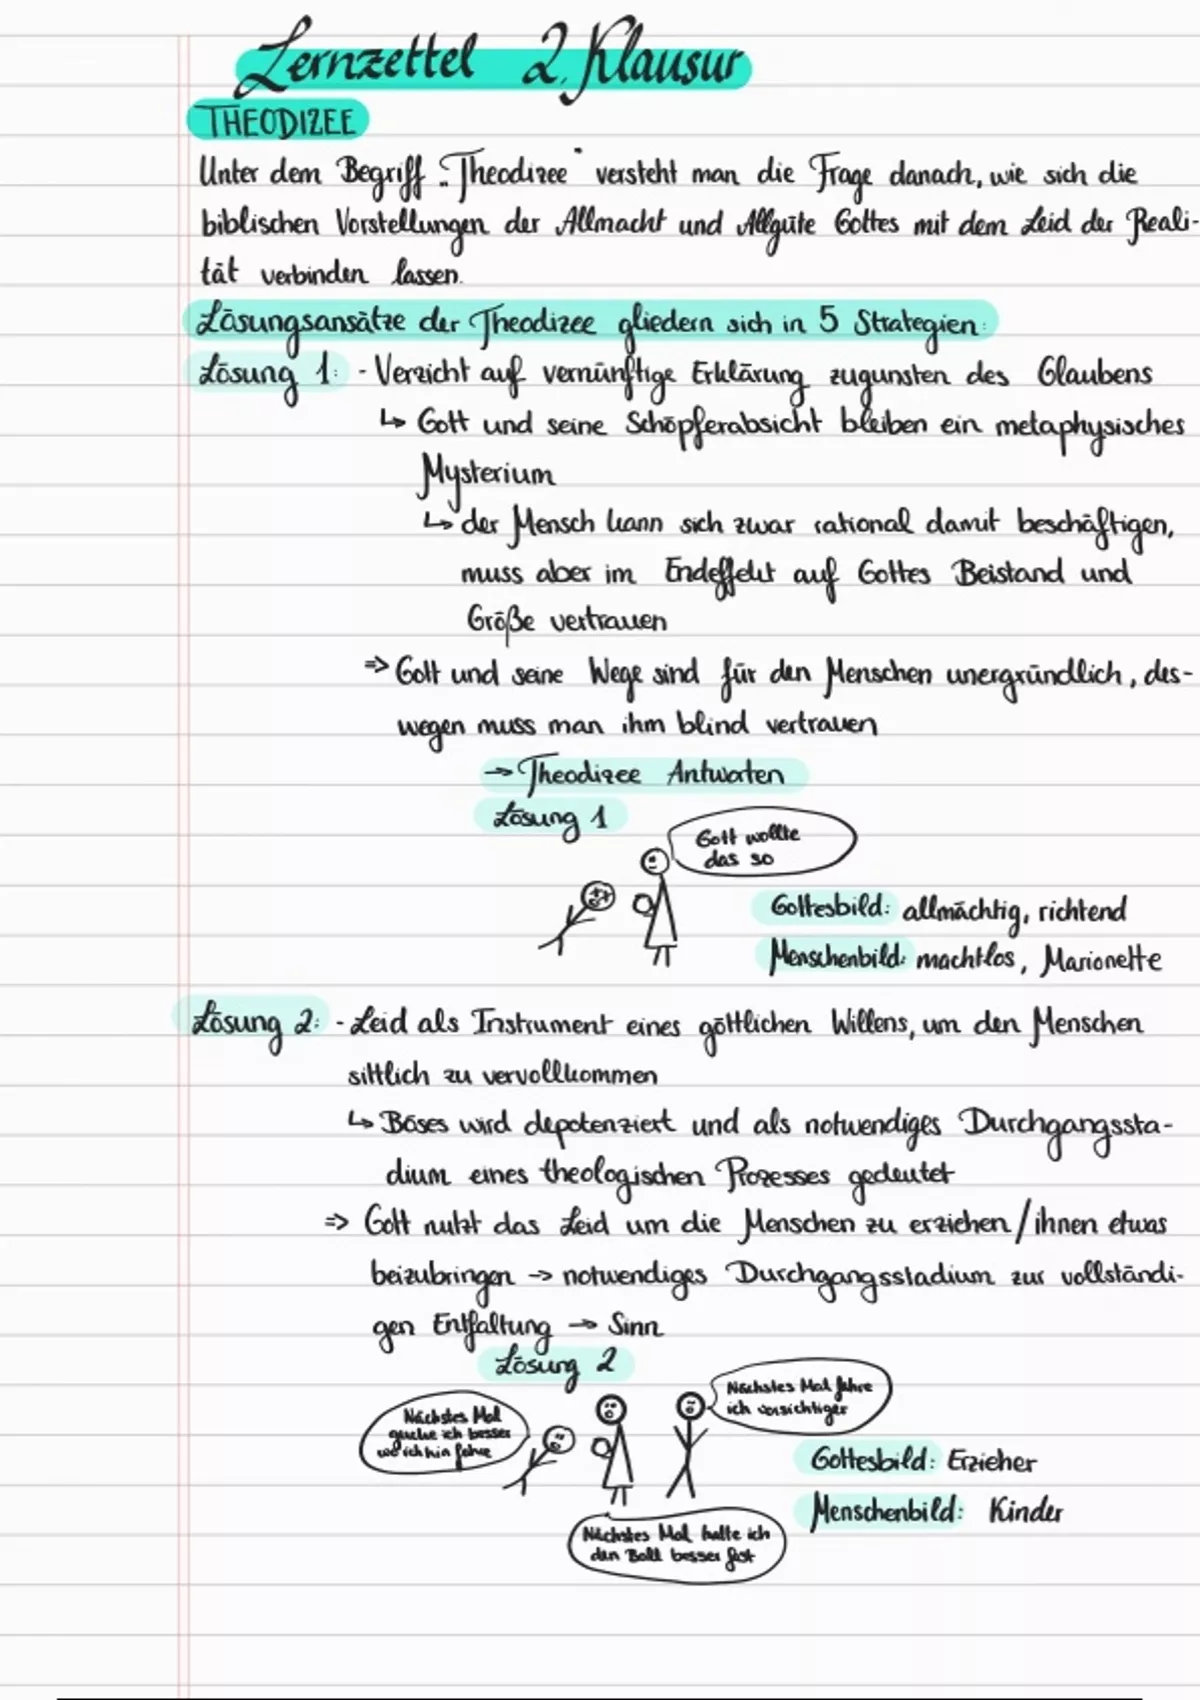 Lernzettel 2. Klausur
THEODIZEE
Unter dem Begriff „Theodizee" versteht man die Frage danach, wie sich die
biblischen Vorstellungen der Allmacht und Allgüte Gottes mit dem Leid der Reali-
tät verbinden lassen.
Lösungsansätze der Theodizee gliedern sich in 5 Strategien:
Lösung 1: - Verzicht auf vernünftige Erklärung zugunsten des Glaubens
↳ Gott und seine Schöpferabsicht bleiben ein metaphysisches
Mysterium
↳ der Mensch kann sich zwar rational damit beschäftigen,
muss aber im Endeffekt auf Gottes Beistand und
Größe vertrauen
=> Gott und seine Wege sind für den Menschen unergründlich, des-
wegen muss man ihm blind vertrauen
→ Theodizee Antworten
Lösung 1
Gott wollte
das so
Gottesbild: allmächtig, richtend
Menschenbild: machtlos, Marionette
Lösung 2: - Leid als Instrument eines göttlichen Willens, um den Menschen
sittlich zu vervollkommen
↳ Böses wird depotenziert und als notwendiges Durchgangssta-
dium eines theologischen Prozesses gedeutet
=> Gott nutzt das Leid um die Menschen zu erziehen / ihnen etwas
beizubringen → notwendiges Durchgangsstadium zur vollständi-
gen Entfaltung → Sinn
Lösung 2
Nächstes Mal fahre
ich vorsichtiger
Nächstes Mal
gucke ich besser
wo ich hin fahre
Gottesbild: Erzieher
Menschenbild: Kinder
Nächstes Mal halte ich
den Ball besser fest